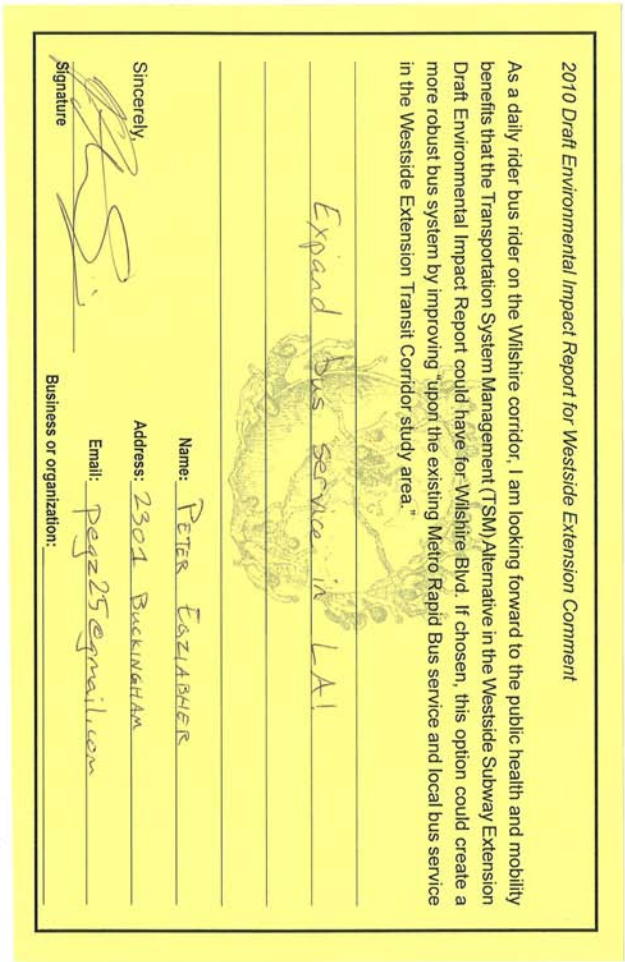 2010 Draft Environmental Impact Report for Westside Extension Comment
As a daily rider bus rider on the Wilshire corridor, I am looking forward to the public health and mobility
benefits that the Transportation System Management (TSM) Alternative in the Westside Subway Extension
Draft Environmental Impact Report could have for Wilshire Blvd. If chosen, this option could create a
more robust bus system by improving "upon the existing Metro Rapid Bus service and local bus service
in the Westside Extension Transit Corridor study area."
Expand bus service in LA!
Sincerely,
Signature
Name: PETER EGZIABHER
Address: 2301 BUCKINGHAM
Email: pegz25@gmail.com
Business or organization: